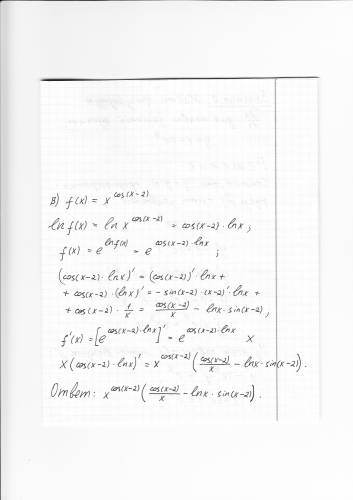 в) f(x) = x^cos(x-2)
ln f(x) = ln x^cos(x-2) = cos(x-2) · lnx ;
f(x) = e^lnf(x) = e^cos(x-2) · lnx ;
(cos(x-2) · lnx)' = (cos(x-2))' · lnx +
+ cos(x-2) · (lnx)' = - sin(x-2) · (x-2)' · lnx +
+ cos(x-2) · 1/x = cos(x-2)/x - lnx · sin(x-2) ,
f'(x) = [e^cos(x-2) · lnx]' = e^cos(x-2) · lnx ×
× (cos(x-2) · lnx)' = x^cos(x-2) (cos(x-2)/x - lnx · sin(x-2)) .
Ответ: x^cos(x-2) (cos(x-2)/x - lnx · sin(x-2)) .